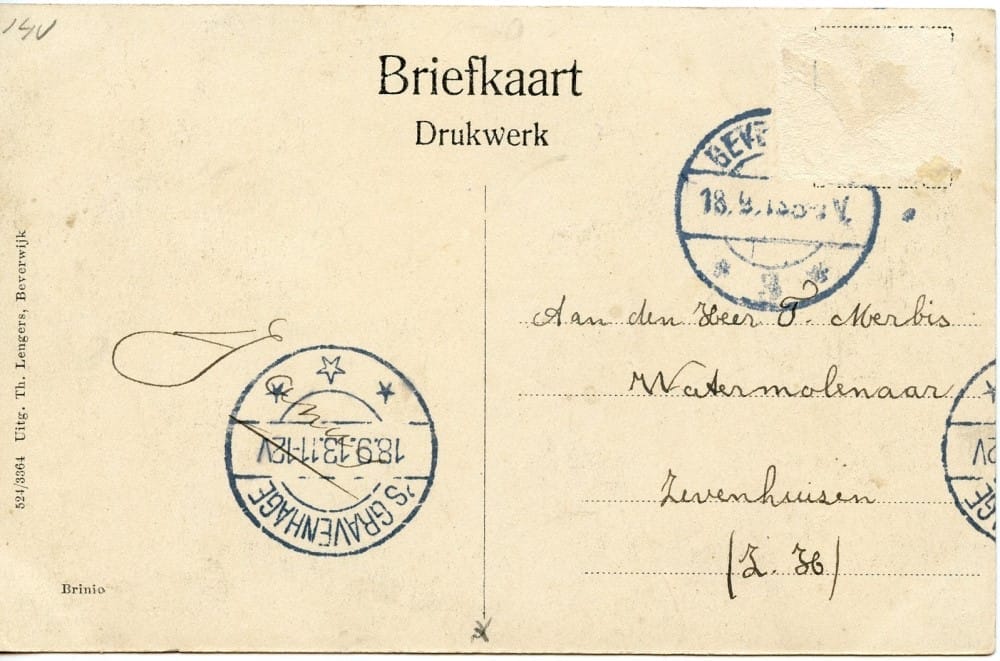 Briefkaart
Drukwerk
18.9.13
Aan den Heer T. Merbis
Watermolenaar
Zevenhuisen
(Z. H)
18.9.13.11-12V
'S GRAVENHAGE
2V
AGE
524/3364 Uitg. Th. Lengers, Beverwijk
Brinio